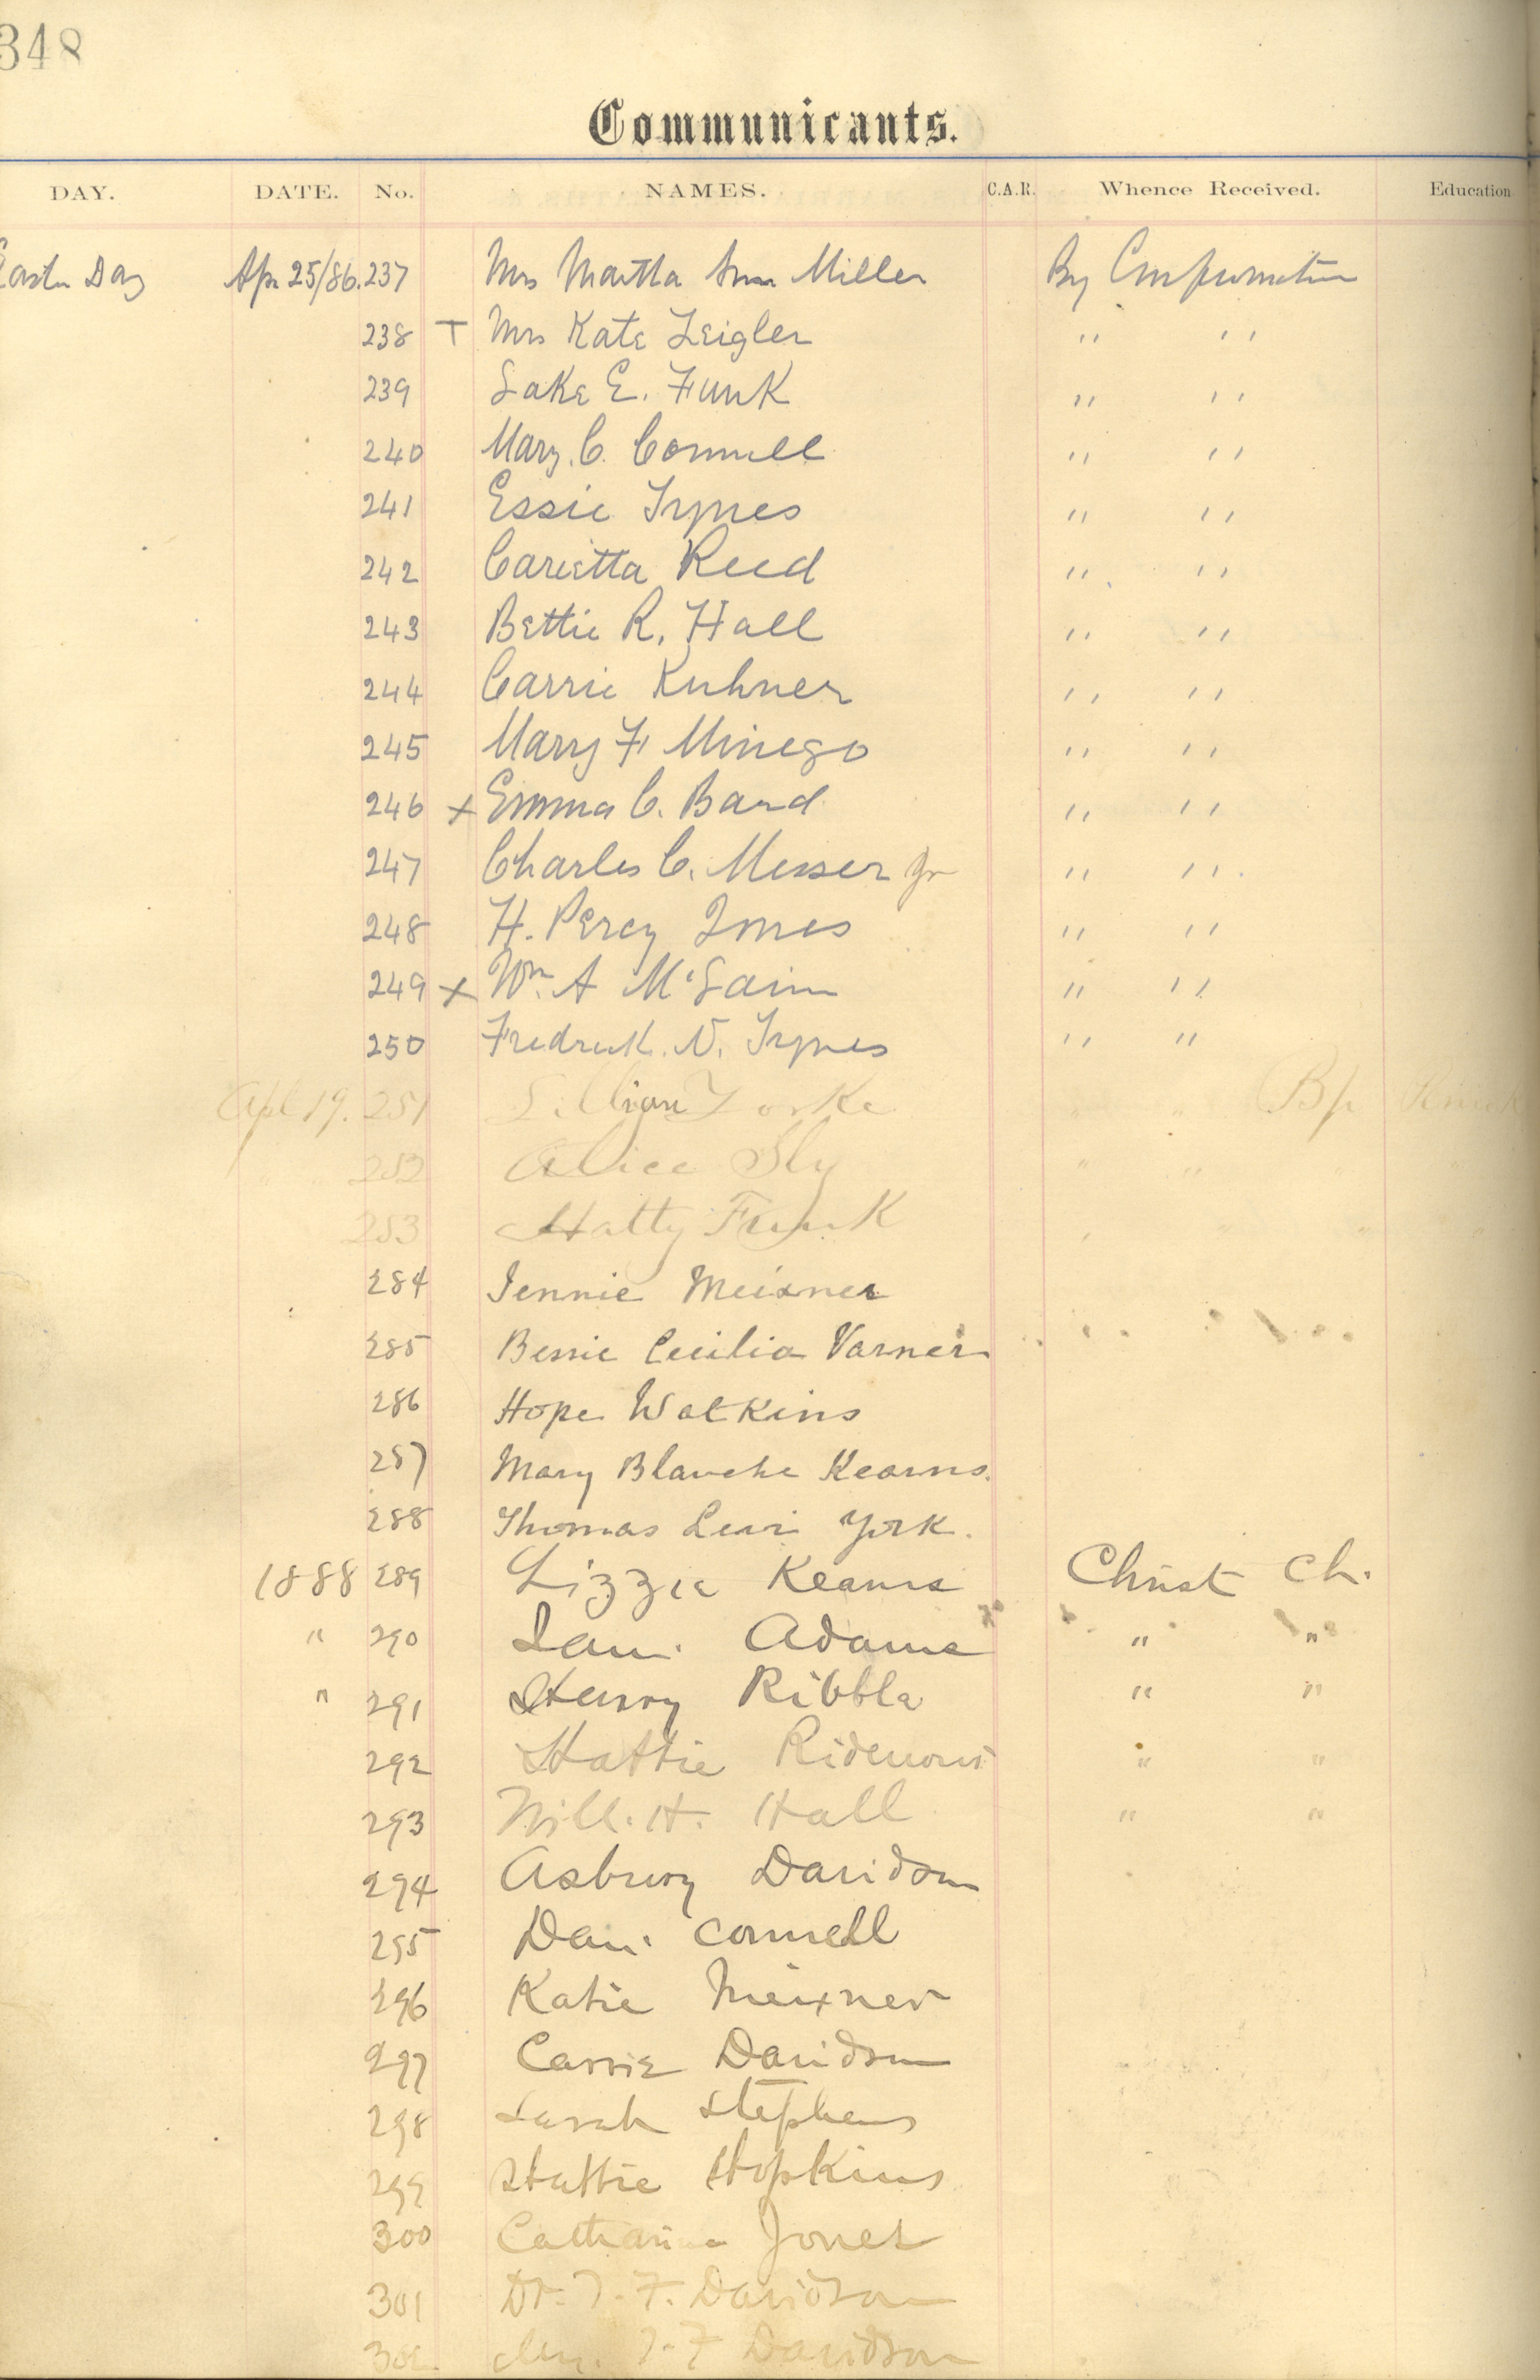 348
Communicants.
DAY. DATE. No. NAMES. C.A.R. Whence Received. Education
Day Apr 25/86. 237 Mrs Martha Ann Miller By Confirmation
238 T Mrs Kate Zeigler " "
239 Lake E. Funk " "
240 Mary. C. Connell " "
241 Essie Tynes " "
242 Carietta Reed " "
243 Bettie R. Hall " "
244 Carrie Kuhner " "
245 Mary F Minego " "
246 x Emma C. Band " "
247 Charles C. Messer Jr " "
248 H. Percy Jones " "
249 x Wm. A " "
250 Fredrick. N. Tynes " "
Apl 19. 251 Lillian Yorke " " Bp
" " 252 Alice Sly " "
253 Hatty Funk
284 Jennie Meixner
285 Bessie Cecilia Varner
286 Hope Watkins
287 Mary Blanche Kearns.
288 Thomas Levi York.
1888 289 Lizzie Kearns Christ Ch.
" 290 Adams " "
" 291 Henry Ribble " "
292 Hattie Ridenour " "
293 Will. H. Hall " "
294 Asbury Davidson
295 Dan. Connell
296 Katie Meixner
297 Carrie Davidson
298 Sarah Stephens
299 Hattie Hopkins
300 Catharine Jones
301 Dr. T. F. Davidson
302 T. F Davidson